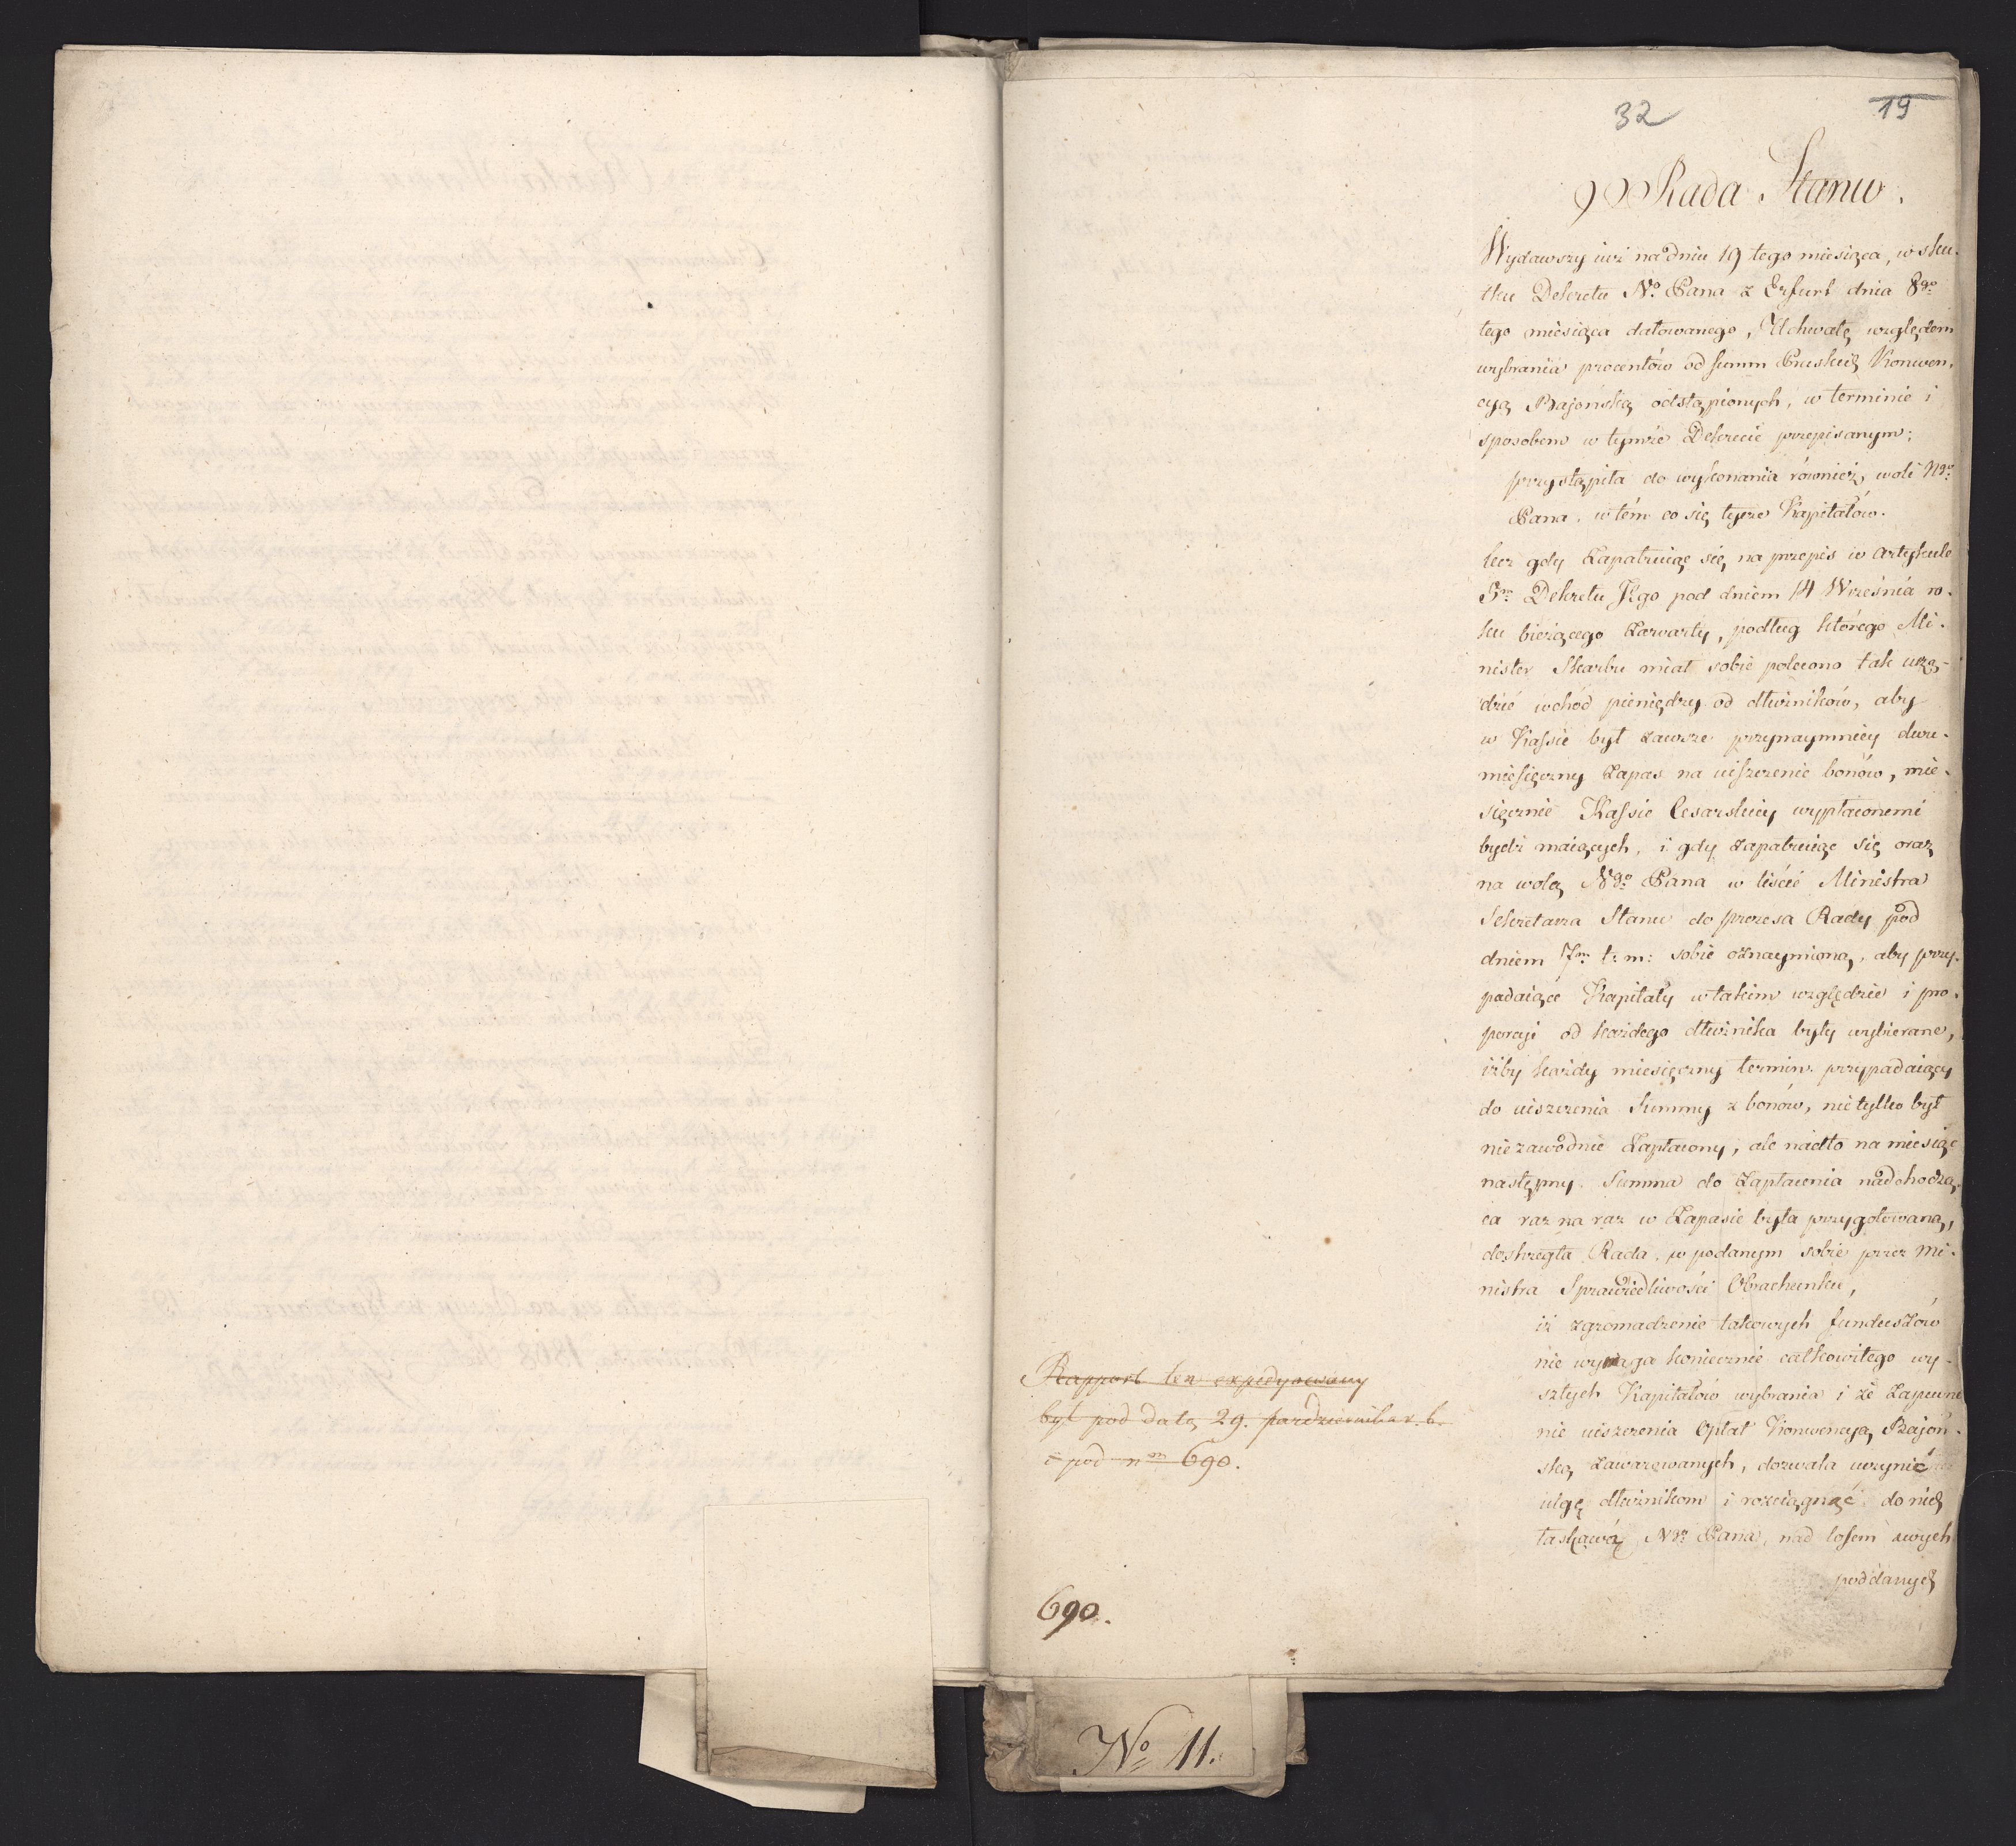 32
19
Rada Stanu.
Wydawszy iuż na dniu 19 tego miesiąca, w sku-
tku Dekretu No. Pana z Erfurt dnia 8go
tego miesiąca datowanego, Uchwałę względem
wybrania procentów od summ Pruskich Konwen-
cyą Bajońską odstąpionych, w terminie i
sposobem w tymże Dekrecie przepisanym;
przystąpiła do wykonania również woli Ngo
Pana, w tém co się tycze Kapitałów.
Lecz gdy zapatruiąc się na przepis w artykule
5m Dekretu Jego pod dniem 14 Września ro-
ku bieżącego zawarty, podług którego Mi-
nister Skarbu miał sobie polecono tak urzą-
dzić wchód pieniędzy od dłużników, aby
w Kassie był zawsze przynaymniey dwu-
miesięczny zapas na uiszczenie bonów, mie-
sięcznie Kassie Cesarskiey wypłaconemi
bydź maiących, i gdy zapatruiąc się oraz
na wolą Ngo Pana w liście Ministra
Sekretarza Stanu do Prezesa Rady pod
dniem 7m t: m: sobie oznaymioną, aby przy-
padaiące Kapitały w takim względzie i pro-
porcyi od każdego dłużnika były wybierane,
iżby każdy miesięczny termin przypadaiący
do uiszczenia Summy z bonów, nie tylko był
niezawodnie zapłacony, ale nadto na miesiąc
następny Summa do zapłacenia nadchodzą-
ca raz na raz w zapasie była przygotowaną,
dostrzegła Rada, w podanym sobie przez Mi-
nistra Sprawiedliwości Obrachunku,
iż zgromadzenie takowych funduszów
nie wymaga koniecznie całkowitego wy-
szłych Kapitałów wybrania i że zapewne
nie uiszczenia Opłat Konwencyą Bajoń-
ską zawarowanych, dozwala uczynić
ulgę dłużnikom i rozciągnąć do nich
łaskawą Ngo Pana, nad losem swych
poddanych
Rapport ten expedyowany
był pod datą 29. pazdziernika r. b.
i pod nm 690.
690.
No 11.